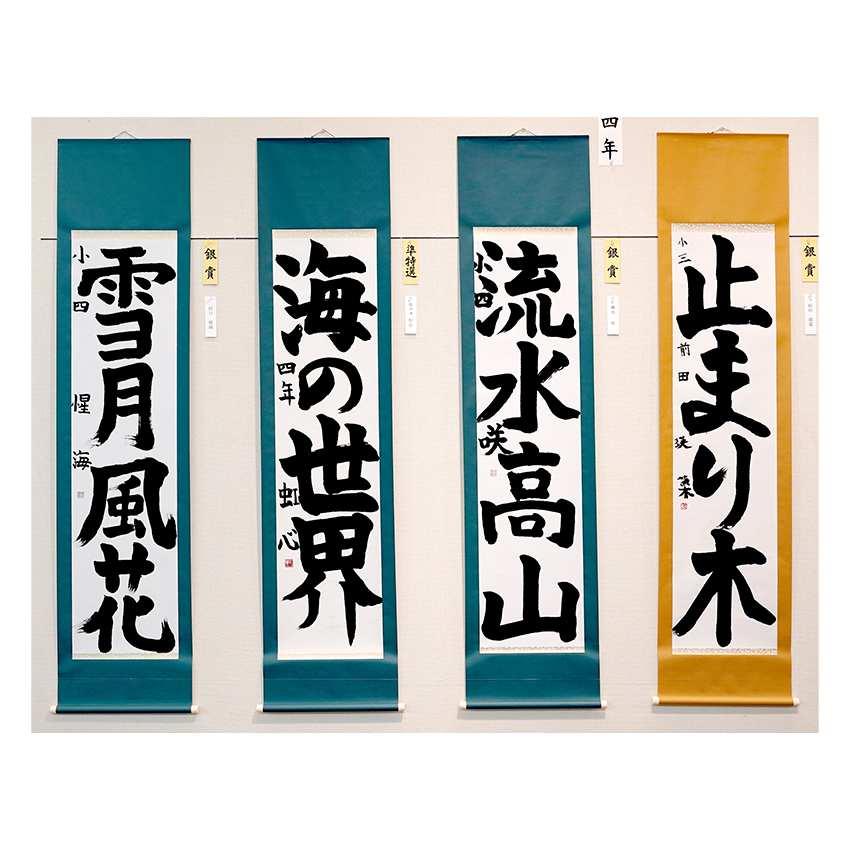 雪月風花
小四 惺海
銀賞
海の世界
四年 虹心
準特選
流水高山
小四 咲
銀賞
四年
止まり木
小三 前田 瑛
銀賞